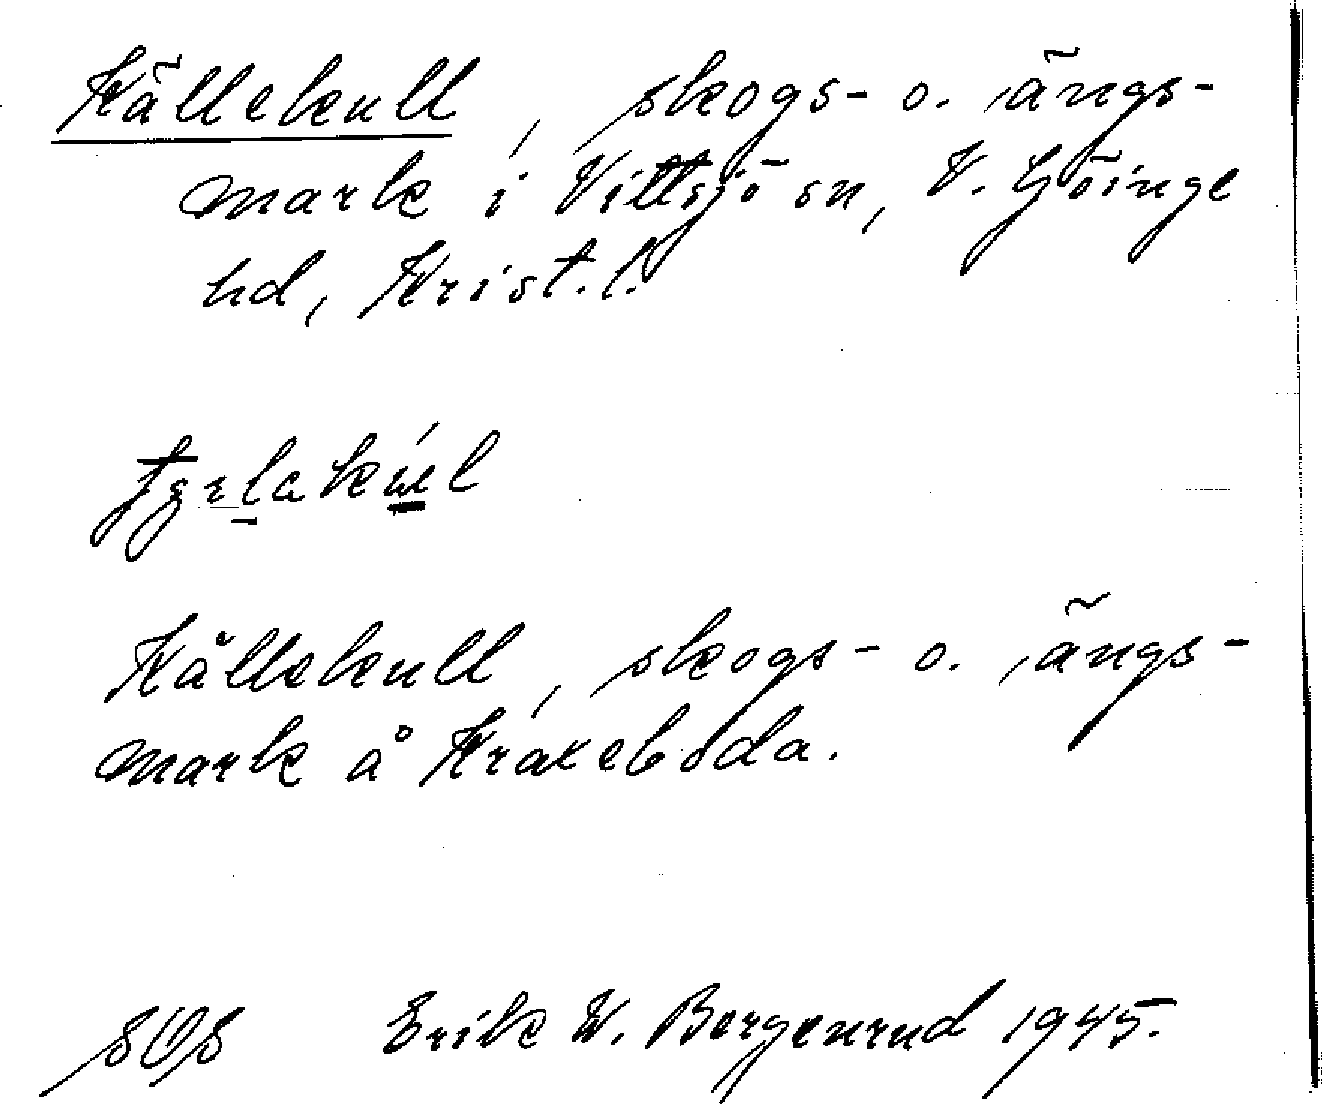 Källekull, skogs- o. ängs-
mark i Vittsjö sn, V. Göinge
hd, Krist. l.
Källekull, skogs- o. ängs-
mark å Kråkeboda.
SOS Erik W. Bergenrud 1945.